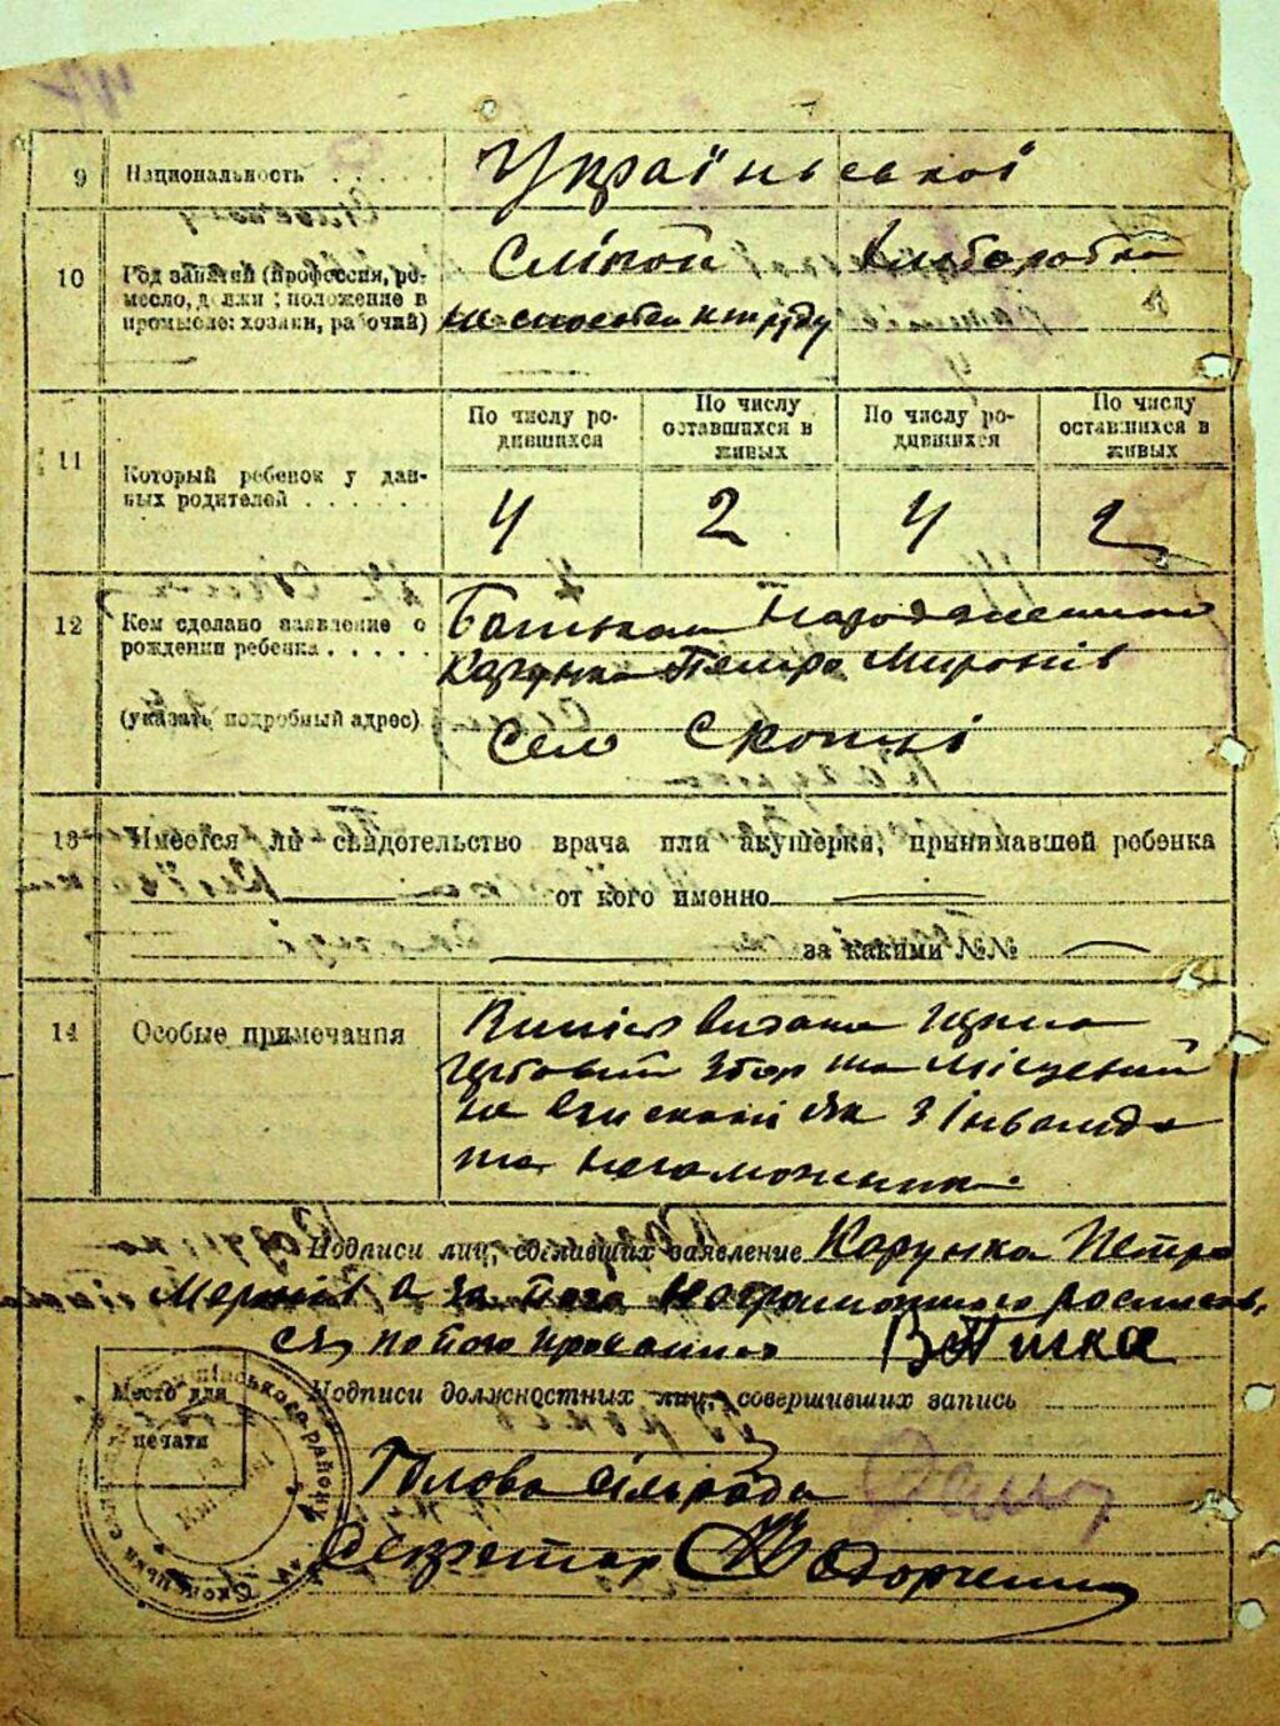 9 Национальность . . . . Україньської
10 Род занятий (профессия, ре-
месло, должн; положение в
промысле: хозяин, рабочий)
Сліпой хлеборобка
не способен к труду
11 Который ребенок у дан-
ных родителей . . . . . .
По числу ро-
дившихся
По числу
оставшихся в
живых
По числу ро-
дившихся
По числу
оставшихся в
живых
4 2 4 2
12 Кем сделано заявление о
рождении ребенка . . . . .
(указать подробный адрес)
Батьком народженного
Карунка Петро Миронів
Село Скопці
13 Имеется ли свидетельство врача или акушерки, принимавшей ребенка
от кого именно
за какими №№
14 Особые примечания
видана
збор та місцевий
як з інваліда
та незаможника.
Подписи лиц, сделавших заявление Карунка Петро
а за його неграмотного росписав-
ся по його проханню
Место для
печати
Подписи должностных лиц, совершивших запись
Голова сільради
Секретар